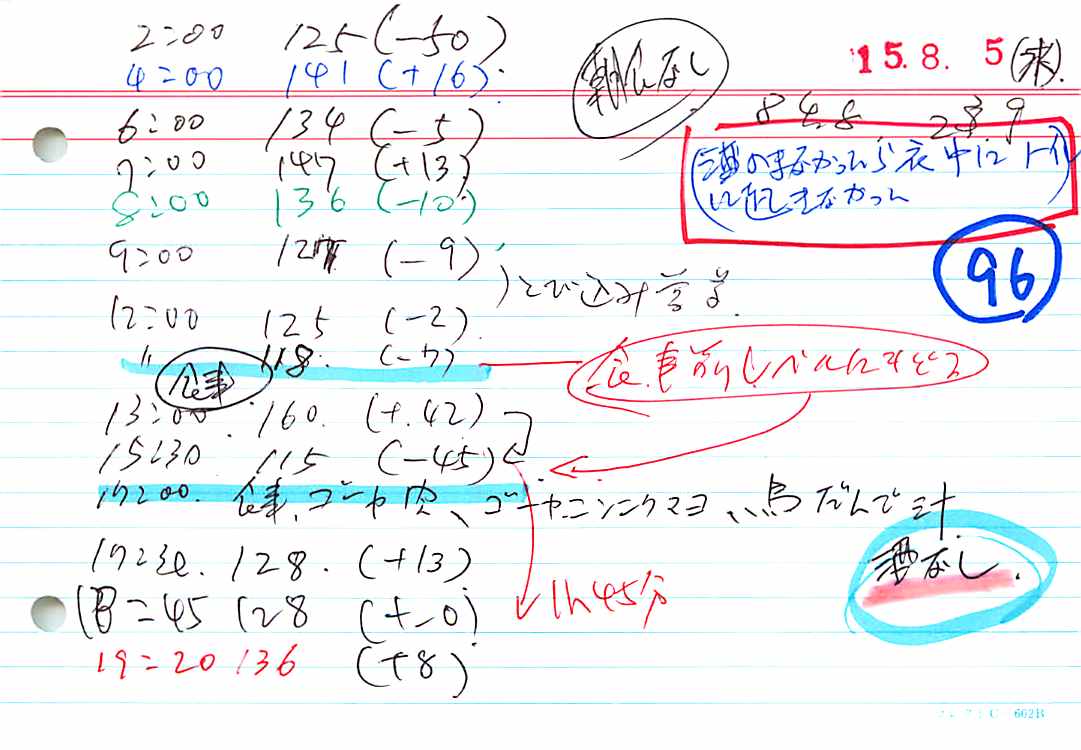 2:00 125 (-50)
朝食なし
15.8.5(水)
4:00 141 (+16)
848 239
6:00 134 (-5)
酒のまなかったら夜中にトイレ
に起きなかった
7:00 147 (+13)
8:00 136 (-10)
9:00 127 (-9)
96
とび込み営業
12:00 125 (-2)
〃 118 (-7)
食事前レベルにもどる
食事
13:00 160 (+42)
15:30 115 (-45)
17:00 食事、ゴーヤ肉、ゴーヤニンニクマヨ、鳥だんご汁
酒なし.
17:30 128 (+13)
18:45 128 (+-0)
1h45分
19:20 136 (+8)
602B